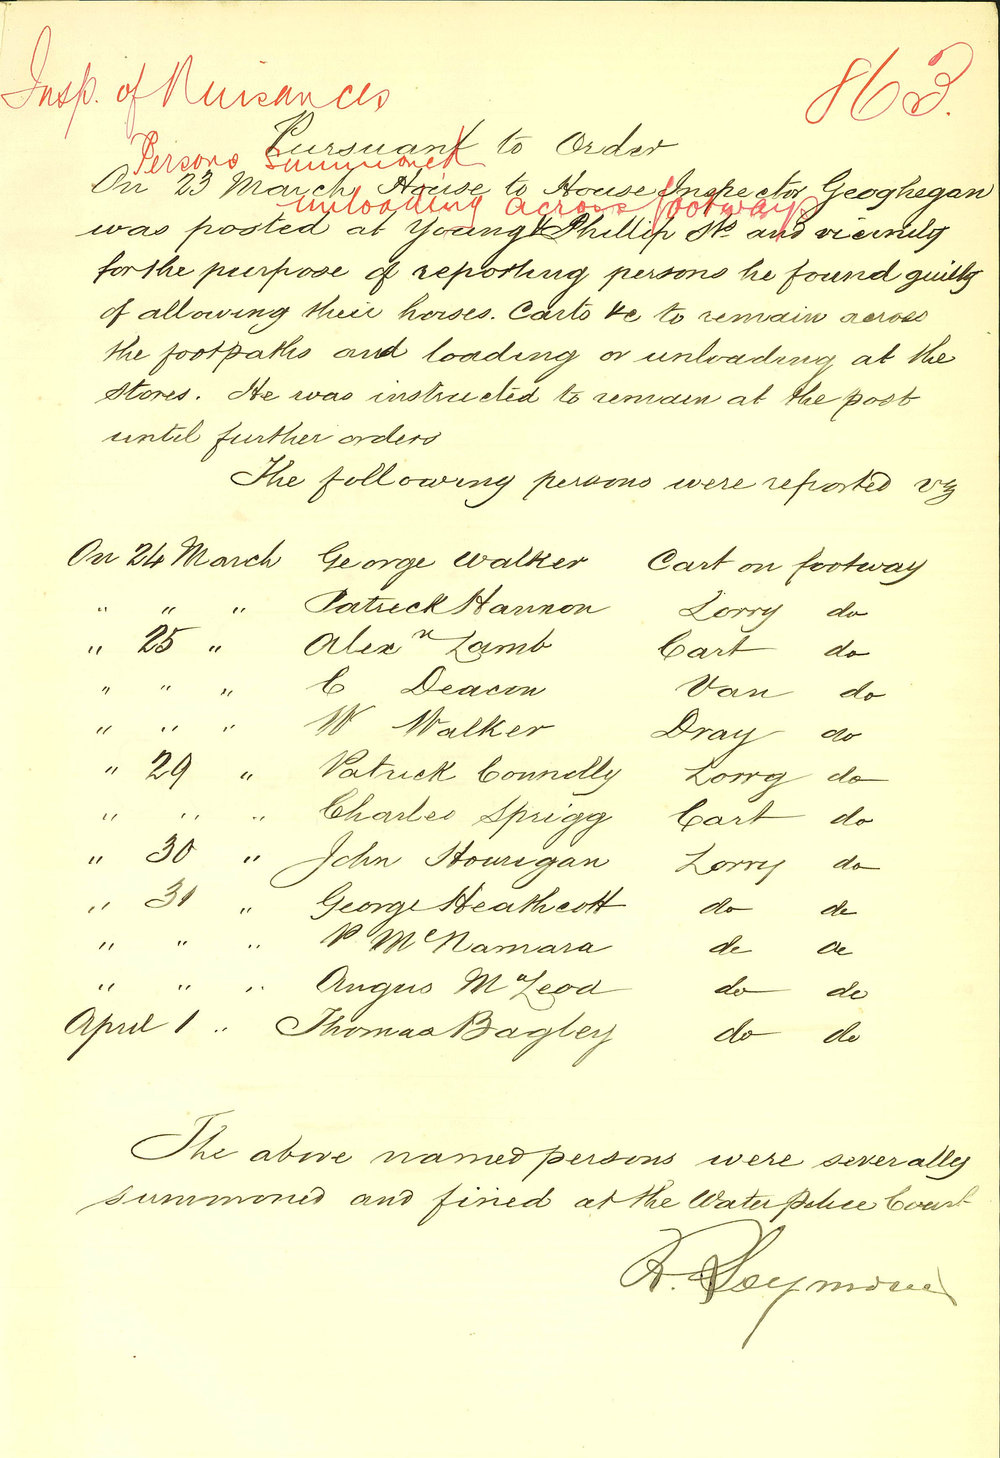 Insp. of Nuisances
863.
Pursuant to Order
Persons Summoned
On 23 March House to House Inspector Geoghegan
unloading across footways
was posted at Young & Phillip Sts and vicinity
for the purpose of reporting persons he found guilty
of allowing their horses. Carts &c to remain across
the footpaths and loading or unloading at the
stores. He was instructed to remain at the post
until further orders
The following persons were reported viz
On 24 March George Walker Cart on footway
" " " Patrick Hannon Lorry do
" 25 " Alexr Lamb Cart do
" " " C Deacon Van do
" " " W Walker Dray do
" 29 " Patrick Connolly Lorry do
" " " Charles Sprigg Cart do
" 30 " John Hourigan Lorry do
" 31 " George Heathcott do do
" " " P McNamara do do
" " " Angus McLeod do do
April 1 " Thomas Bagley do do
The above named persons were severally
summoned and fined at the Water Police Court
R. Seymour